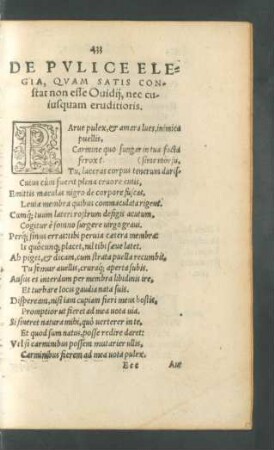 433
DE PVLICE ELE-
GIA, QVAM SATIS CON
stat non esse Ouidij, nec cu
iusquam eruditioris.
PArue pulex, & amara lues, inimica
puellis,
Carmine quo fungar in tua facta
ferox?
Tu, laceras corpus tenerum duris-
Cuius cùm fuerit plena cruore cutis,
Emittis maculas nigro de corpore fuscas,
Leuia membra quibus commaculata rigent.
Cumq; tuum lateri rostrum defigis acutum,
Cogitur è somno surgere uirgo graui.
Perq; sinus erras: tibi peruia cætera membra:
Is quòcunq; placet, nil tibi sæue latet.
Ah piget, & dicam, cum strata puella recumbit,
Tu femur auellis, cruraq; aperta subis.
Ausus es interdum per membra libidinis ire,
Et turbare locis gaudia nata suis.
Dispereã, nisi iam cupiam fieri meus hostis,
Promptior ut fieret ad mea uota uia.
Si sineret natura mihi, quò uerterer in te,
Et quod sum natus, posse redire daret:
Vel si carminibus possem mutarier ullis,
Carminibus fierem ad mea uota pulex.
Eee
Aut